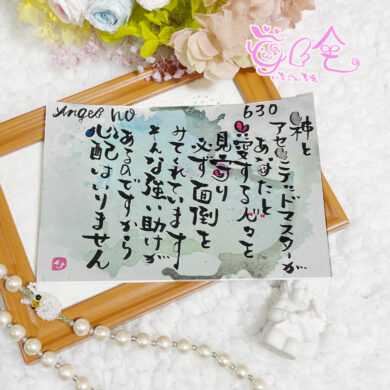 Angel no 630
神と
アセンデッドマスターが
あなたと
愛する人々を
見守り
必ず面倒を
みてくれています
そんな強い助けが
あるのですから
心配はいりません